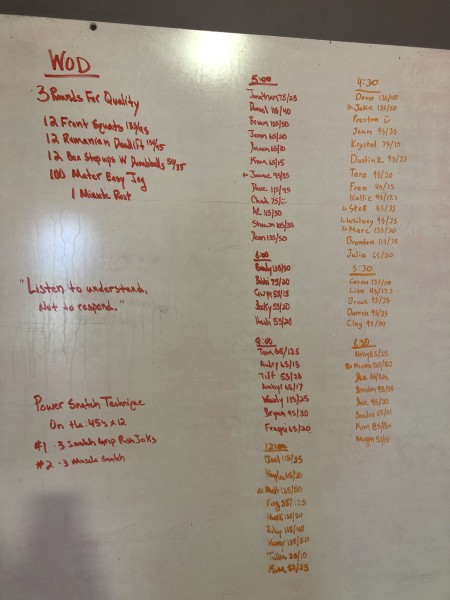 WOD
3 Rounds For Quality
12 Front Squats 135/95
12 Romanian Deadlift 135/95
12 Box Stepups W Dumbbells 50/35
100 Meter Easy Jog
1 Minute Rest
"Listen to understand,
Not to respond."
Power Snatch Technique
On the :45's x12
#1 - 3 Snatch Grip Push Jerks
#2 - 3 Muscle Snatch
5:00
Jonathan 75/25
Daniel 115/40
Brian 135/50
Jenn 65/20
65/10
Kim 65/15
95/35
Dave 115/45
Chad 75/
AL 115/50
Shawn 105/35
Dean 135/50
6:00
Brady 135/50
Bobbi 75/20
Gwyn 55/15
Becky 55/20
Heidi 55/20
9:00
Tom 65/12.5
Ashy 65/15
Tiff 55/20
65/17
Woody 115/25
Bryan 95/30
65/20
12:00
Joel 115/35
65/20
Matt 125/50
Riley 115/40
25/10
Kim
4:30
135/50
Jake 135/50
Preston
Jann 95/35
Krystal 75/15
Dustin K 95/35
Tara 45/20
Fran 44/15
Kallie 45/17.5
Steff 45/35
Whitney 45/35
Marc 135/50
Brandon 115/35
Julia 65/20
5:30
135/50
Lisa 45/17.5
Brian 95/35
Darren 95/35
Clay 95/50
65/25
135/50
95/35
95/30
55/10
Kim
Megan 55/10